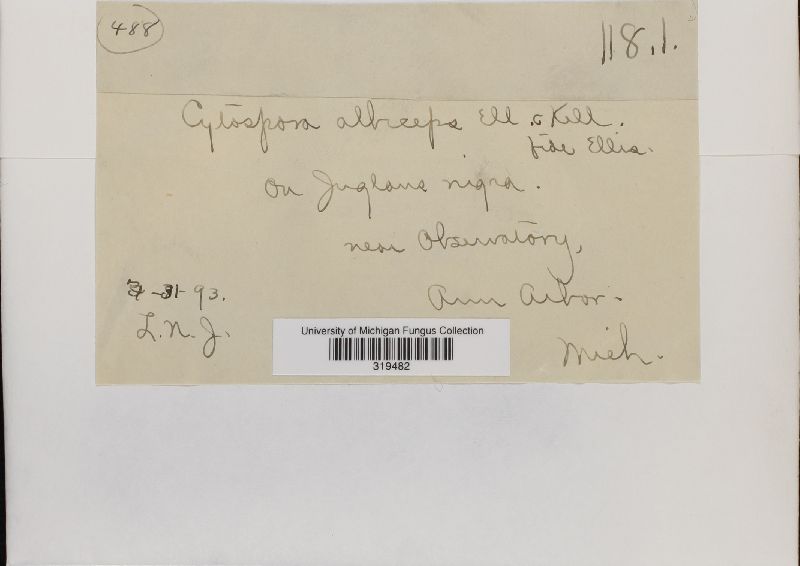 488
118.1.
Cytospora albiceps Ell & Kell.
fide Ellis.
on Juglans nigra.
near Observatory,
3-31-93.
Ann Arbor.
L.N.J.
Mich.
University of Michigan Fungus Collection
319482